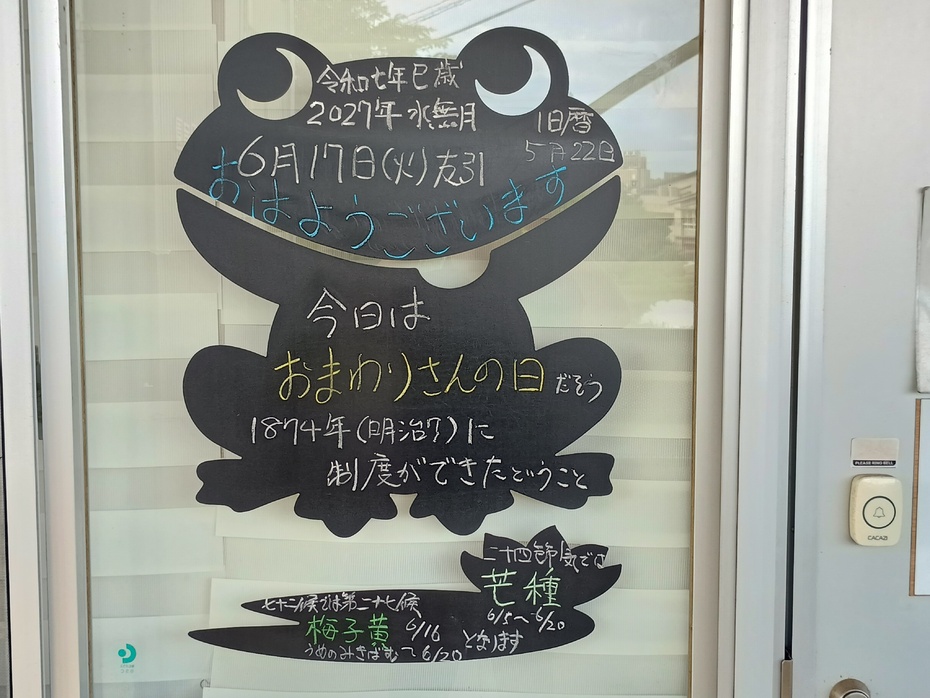 令和七年巳歳
2027年 水無月
旧暦
5月22日
6月17日(火)友引
おはようございます
今日は
おまわりさんの日だそう
1874年(明治7)に
制度ができたということ
二十四節気では
芒種
6/5〜6/20
七十二候では第二十七候
梅子黄 6/16
うめのみきばむ 〜6/20
となります
PLEASE RING BELL
CACAZI